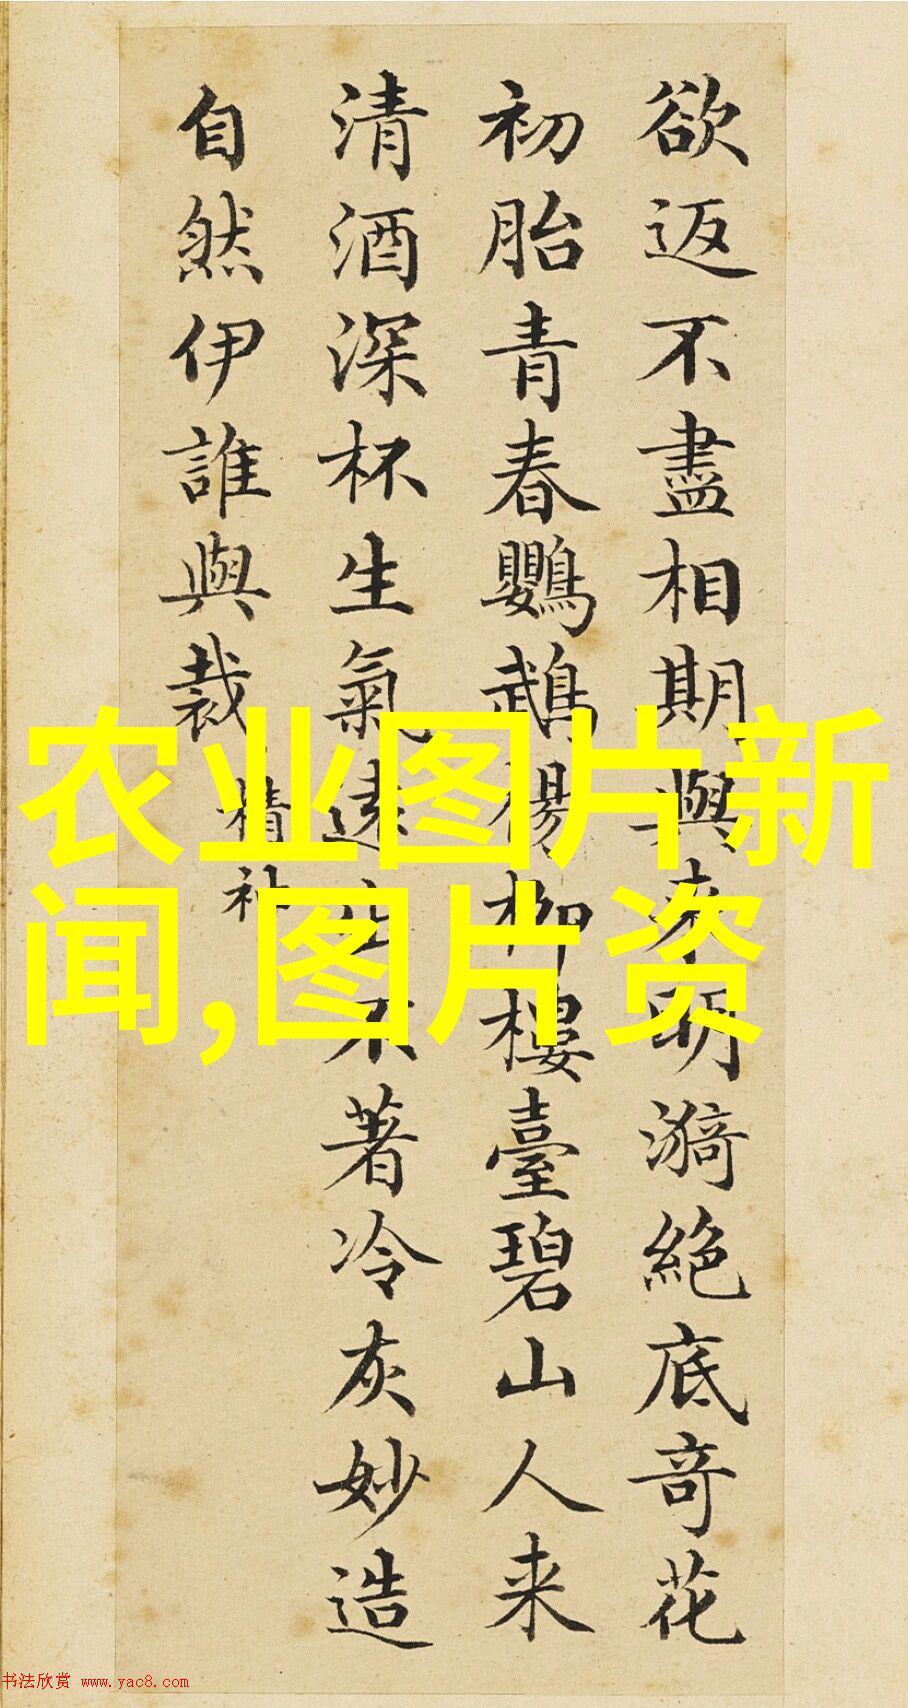 欲返不盡相期與来明漪絕底奇花
初胎青春鸚鵡楊柳樓臺碧山人来
清酒深杯生氣遠出不著冷灰妙造
自然伊誰與裁
精神
农业图片新
闻,图片资
书法欣赏 www.yac8.com